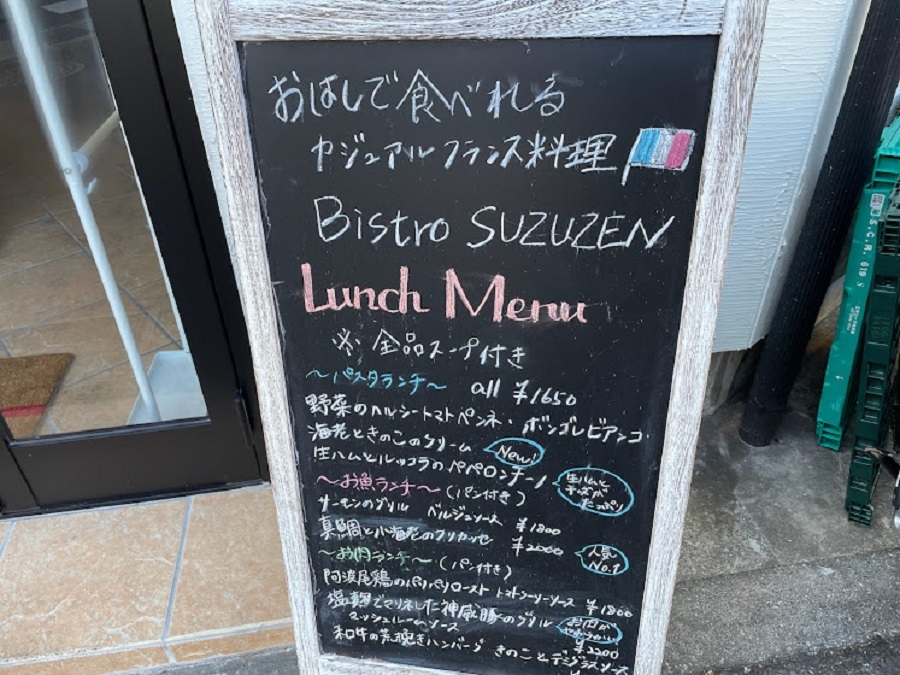 おはしで食べれる
カジュアルフランス料理
Bistro SUZUZEN
Lunch Menu
※全品スープ付き
〜パスタランチ〜 all ¥1650
野菜のヘルシートマトペンネ・ボンゴレビアンコ
海老ときのこのクリーム New!
生ハムとルッコラのペペロンチーノ 生ハムと チーズが たっぷり
〜お魚ランチ〜(パン付き)
サーモンのグリル ベルジュソース ¥1800
真鯛と小海老のフリカッセ ¥2000 人気 No.1
〜お肉ランチ〜(パン付き)
阿波尾鶏のパリパリロースト トマトソース ¥1800
塩麹でマリネした神威豚のグリル お肉が やわらかい
マッシュルームソース ¥2200
和牛の荒挽きハンバーグ きのことデミグラスソース
S.C.R. 619 S